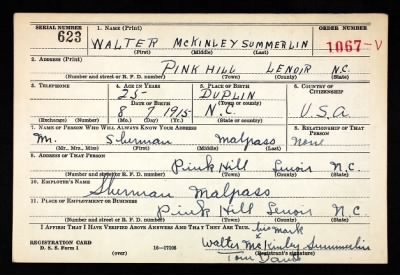 SERIAL NUMBER
623
1. Name (Print)
ORDER NUMBER
WALTER McKINLEY SUMMERLIN
1067-V
(First) (Middle) (Last)
2. Address (Print)
PINK HILL LENOIR N.C.
(Number and street or R. F. D. number) (Town) (County) (State)
3. Telephone
4. Age in Years
5. Place of Birth
6. Country of Citizenship
25
DUPLIN
Date of Birth
(Town or county)
8 7 1915
N.C.
U.S.A.
(Exchange) (Number)
(Mo.) (Day) (Yr.)
(State or country)
7. Name of Person Who Will Always Know Your Address
8. Relationship of That Person
Mr. Sherman Malpass Non
(Mr., Mrs., Miss) (First) (Middle) (Last)
9. Address of That Person
Pink Hill Lenoir N.C.
(Number and street or R. F. D. number) (Town) (County) (State)
10. Employer's Name
Sherman Malpass
11. Place of Employment or Business
Pink Hill Lenoir N.C.
(Number and street or R. F. D. number) (Town) (County) (State)
I Affirm That I Have Verified Above Answers and That They Are True.
his mark
REGISTRATION CARD
D. S. S. Form 1
16—17105
Walter McKinley Summerlin
(over)
(Registrant's signature)
Tom Davis